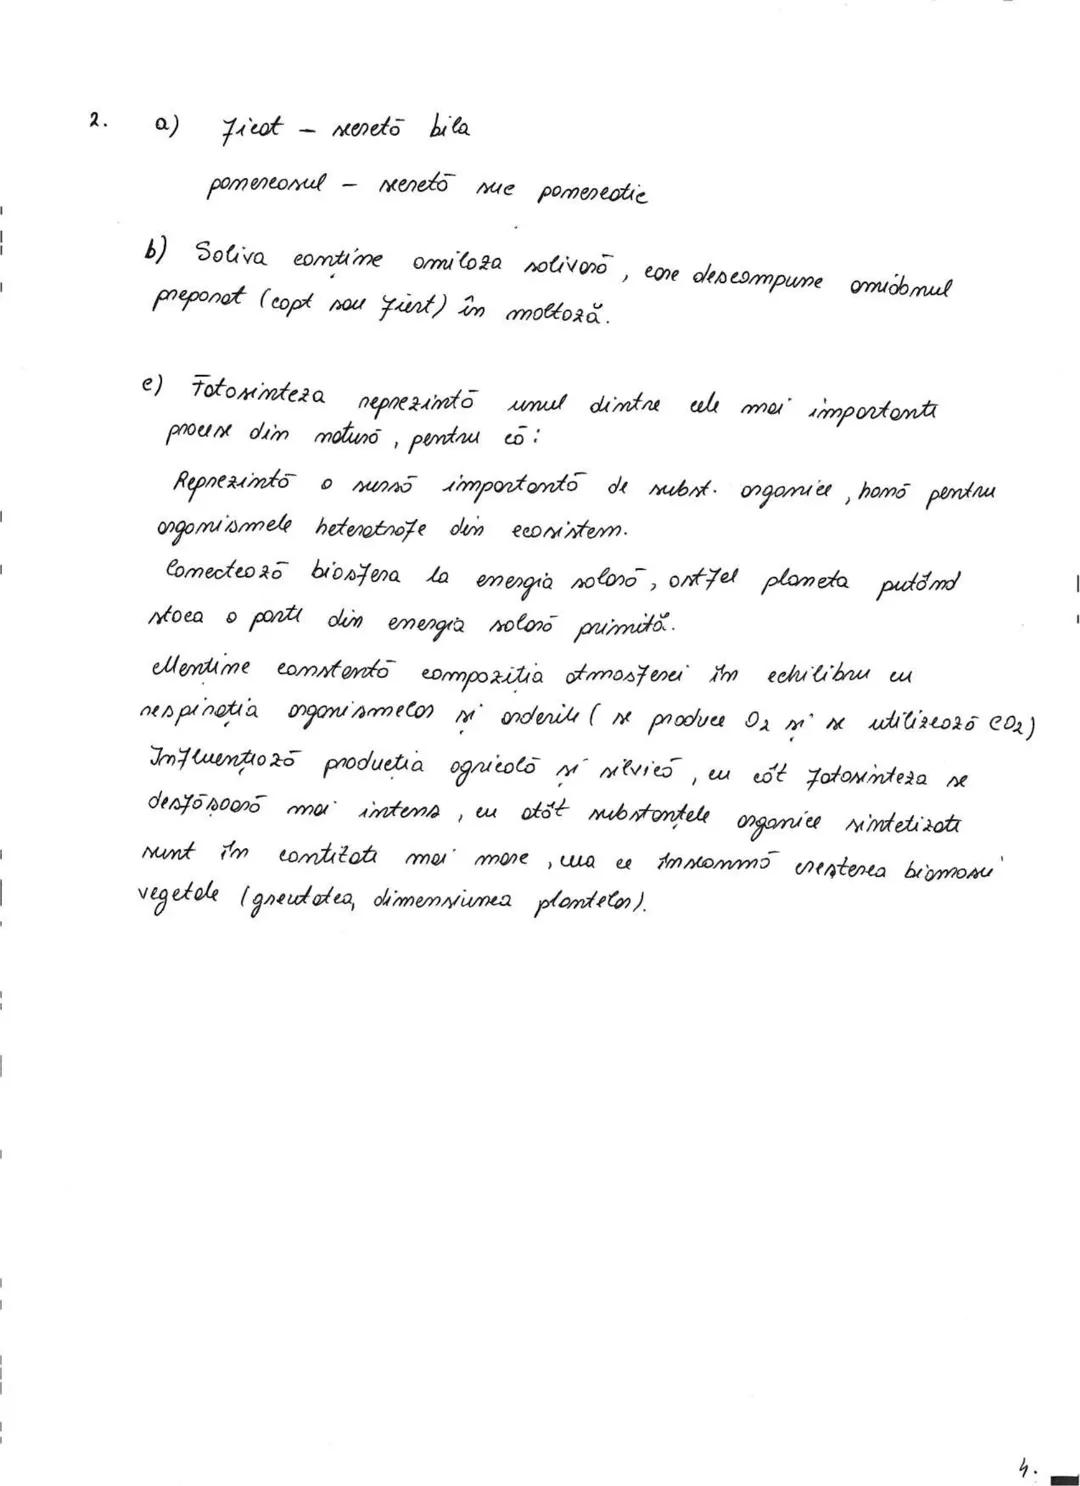 2. a) Ficat - secretă bila
pancreasul - secretă suc pancreatic
b) Saliva conține amilaza salivară, care descompune amidonul
preparat (copt sau fiert) în maltoză.
c) Fotosinteza reprezintă unul dintre cele mai importante
procese din natură, pentru că:
Reprezintă o sursă importantă de subst. organice, hrană pentru
organismele heterotrofe din ecosistem.
Conectează biosfera la energia solară, astfel planeta putând
stoca o parte din energia solară primită.
Menține constantă compoziția atmosferei în echilibru cu
respirația organismelor și arderile (se produce O2 și se utilizează CO2)
Influențează producția agricolă și silvică, cu cât fotosinteza se
desfășoară mai intens, cu atât substanțele organice sintetizate
sunt în cantitate mai mare, ceea ce înseamnă creșterea biomasei
vegetale (greutatea, dimensiunea plantelor).
4.